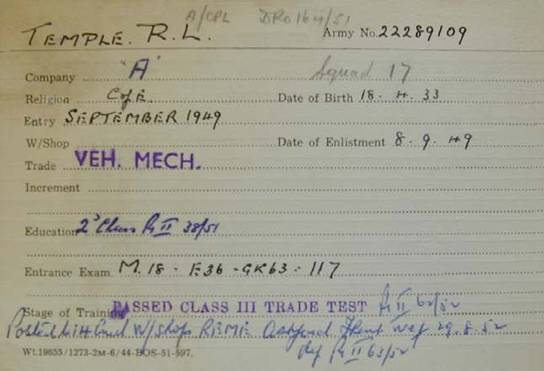 A/CPL DRO 164/51
TEMPLE. R.L. Army No. 22289109
Company 'A' Squad 17
Religion C of E. Date of Birth 18. 4. 33
Entry SEPTEMBER 1949
W/Shop Date of Enlistment 8. 9. 49
Trade VEH. MECH.
Increment
Education 2nd Class Pt II 38/51
Entrance Exam. M.18 - E36 - GK63 - 117
Stage of Training PASSED CLASS III TRADE TEST Pt II 62/52
Posted to 14 W/Shop REME Ashford Kent wef 29.8.52
Pt II 63/52
Wt.19655/1273-2M-6/44-BOS-51-597.